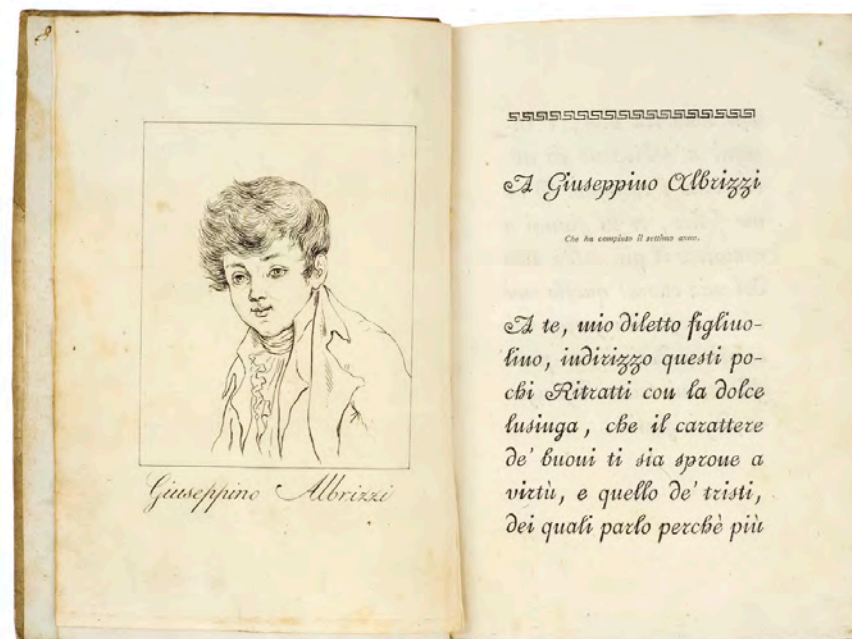 Giuseppino Albrizzi
A Giuseppino Albrizzi
Che ha compiuto il settimo anno.
A te, mio diletto figliuo-
lino, indirizzo questi po-
chi Ritratti con la dolce
lusinga, che il carattere
de' buoni ti sia sprone a
virtù, e quello de' tristi,
dei quali parlo perchè più